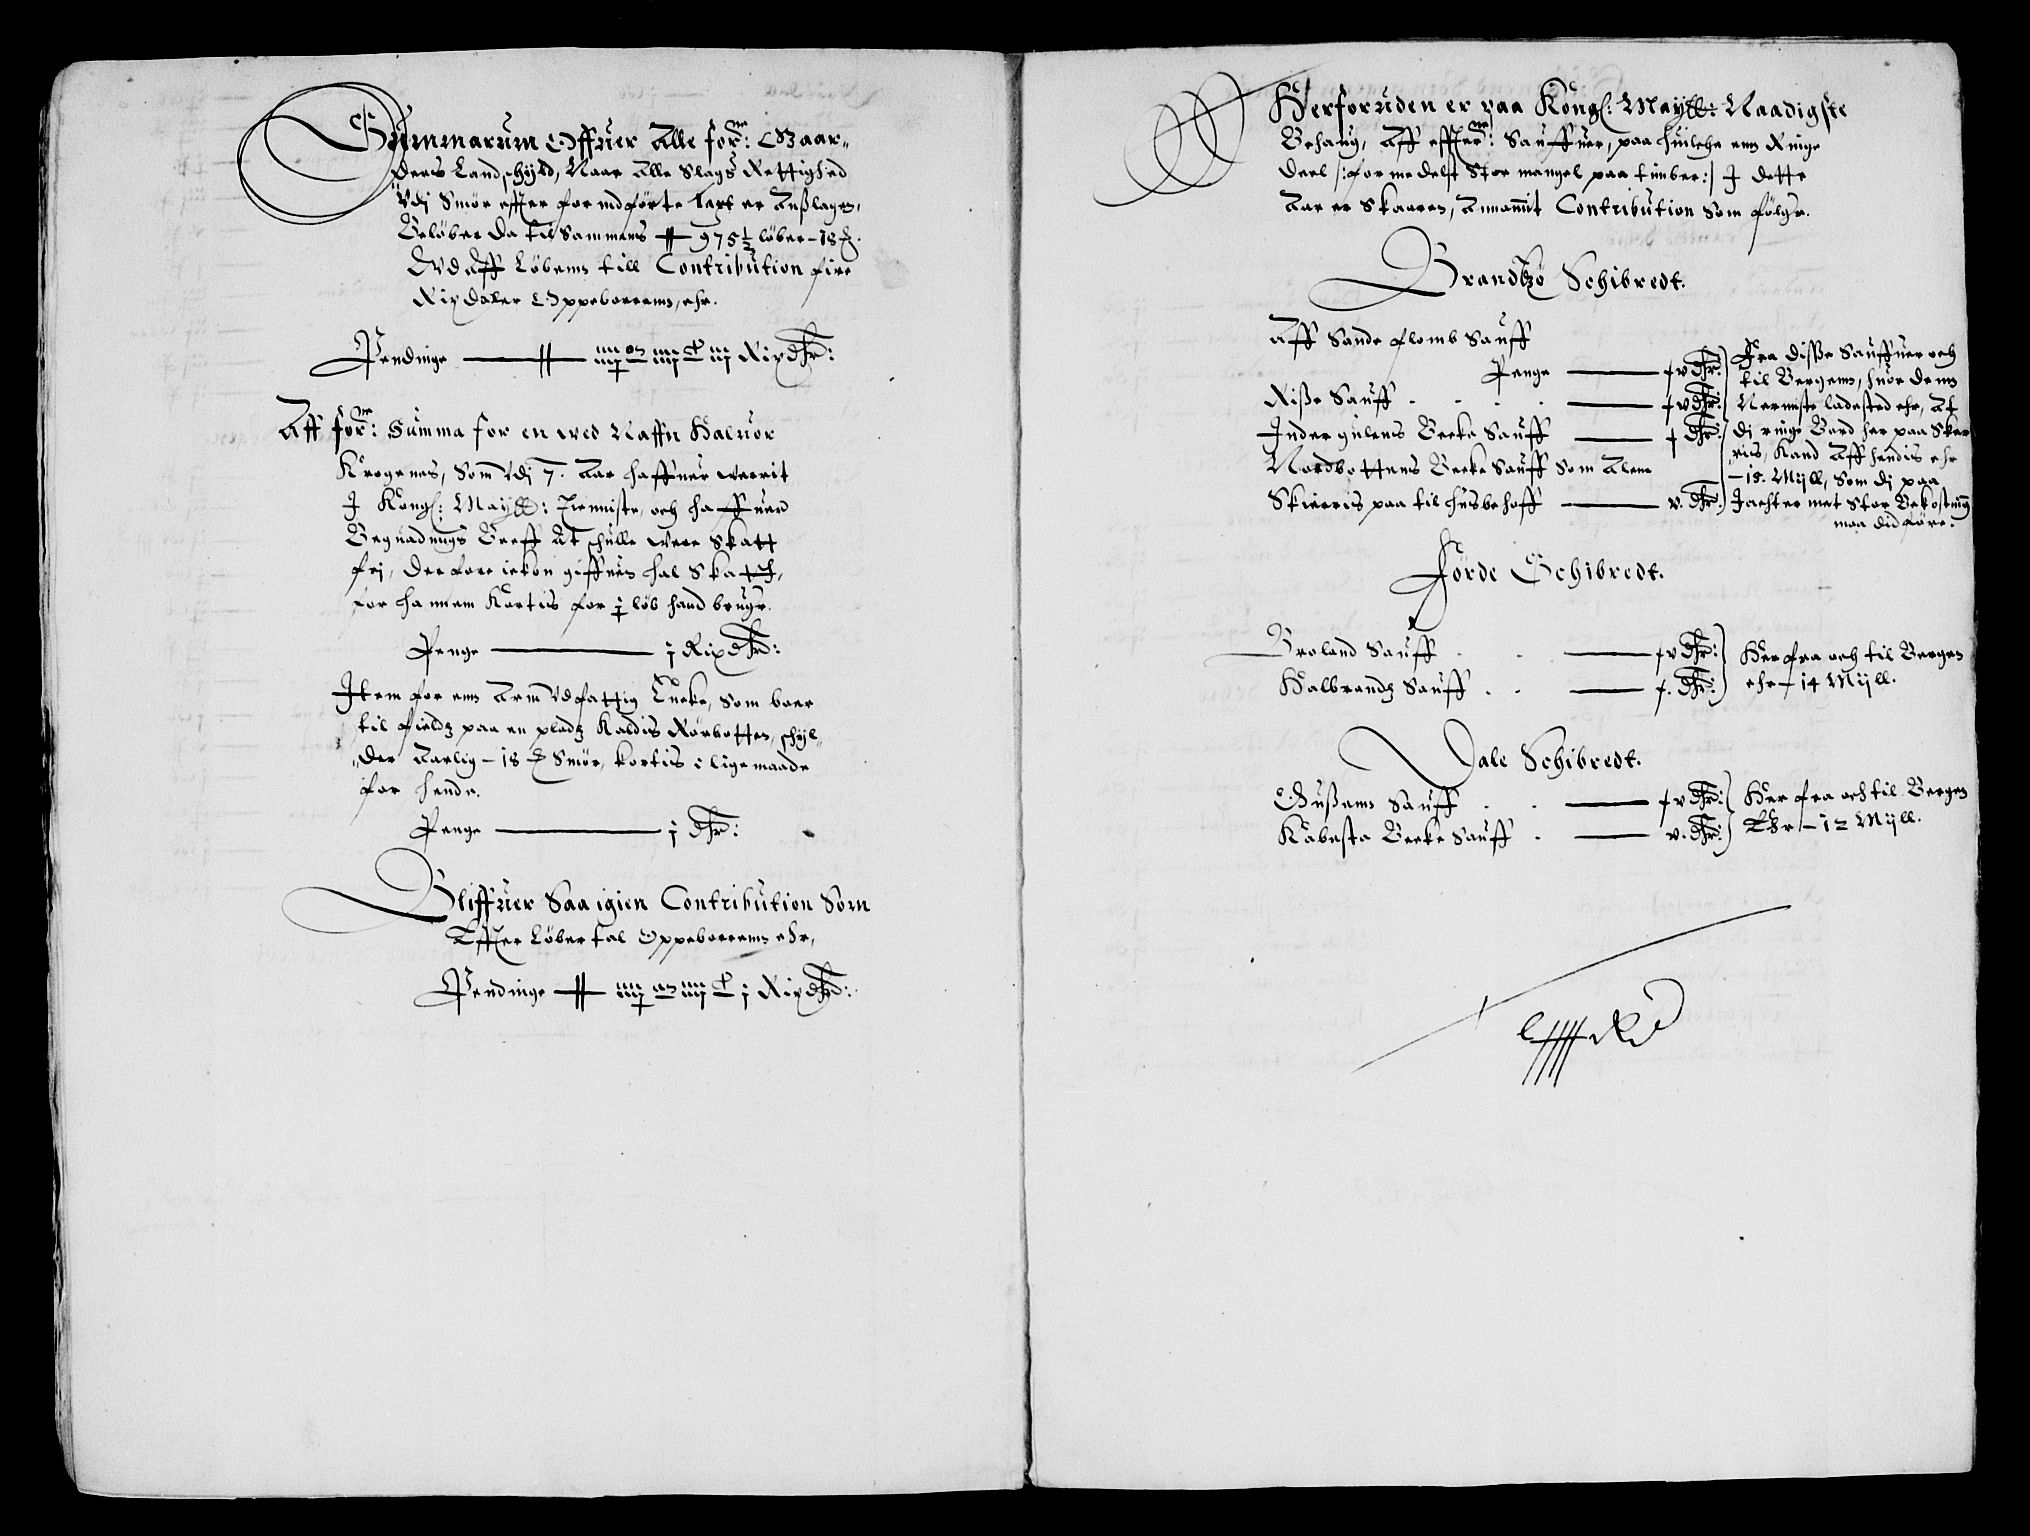 Summarum Offuer Alle forne: Gaar-
deris Landschyld, Naar Alle Slags Rettighed
Vdj Smør effter formdførte Taxt er Anslagen,
Beløber da tilsammens ⸺ 975½ løber – 18
Hvdaff Løbenn till Contribution fire
Rixdaler Oppeborrenn, ehr.
Pendinge ⸺ Rixdlr:
Aff forne: Summa for en wed Naffn Haluor
Krogenes, Som Vdj 7. Aar haffuer werrit
J Kongl: Maytt: Tienniste, och haffuer
Begnadings Breff At schulle were Skatt
frj, Der fore ickon giffuen hal Skatt,
for hannem Kortis for j løb hand brugr.
Penge ⸺ j Rixdlr:
Item for enn Arm Vdfattig Encke, Som boer
til Fieldz paa en pladz Kaldis Rørbotten, schyl-
der Aarlig – 18 Smør, kortis i lige maade
for hende.
Penge ⸺ j dlr:
Bliffuer Saa igien Contribution Som
Effter Løbertal Oppeborrenn ehr,
Pendinge ⸺ Rixdlr:
Herforuden er paa Kongl: Maytt: Naadigste
Behaug, Aff effterne: Sauffuer, paa huilche enn Ringe
Deel /: formedelst Stor mangel paa timber :/ J dette
Aar er Skaaren, Annammit Contribution Som følgr.
Brandtzø Schibredt.
Aff Sande flomb Sauff
Penge ⸺ jv dlr:
Riße Sauff ⸺ jv dlr:
Indergulens Becke Sauff ⸺ j dlr:
Nordbottens Becke Sauff Som Alene
Skierris paa til husbehoff ⸺ v. dlr:
Fra disse Sauffuer och
til Bergenn, huor denn
Nermiste ladested ehr, At
di ringe Bord her paa Sker
ris, Kand Aff hendis ehr
– 18. Mijll, Som di paa
Jachter met Stor Bekostning
maa did føre.
Førde Schibredt.
Broland Sauff ⸺ jv dlr:
Halbrendz Sauff ⸺ j. dlr:
Her fra och til Bergen
ehr – 14 Mijll.
Dale Schibredt.
Gußenn Sauff ⸺ jv dlr:
Kabesta Becke Sauff ⸺ v. dlr:
Her fra och til Bergen
Ehr – 12 Mijll.